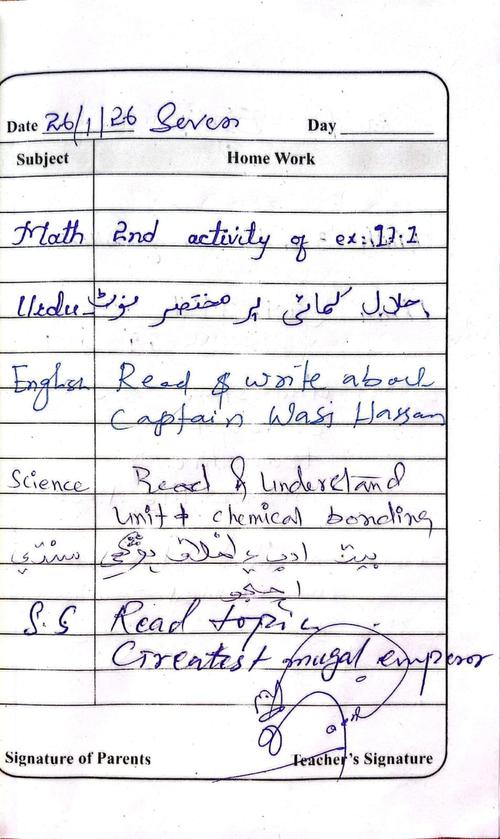 Date 26/1/26 Seven Day
Subject Home Work
Math 2nd activity of ex: 17.1
Urdu حلال کمائی پر مختصر نوٹ
English Read & write about
Captain Wasi Hassan
Science Read & Understand
Unit 4 chemical bonding
سنڌي بيت ادب ۽ اخلاق
اچجو
S.S Read topic
Greatest mugal emperor
Signature of Parents Teacher's Signature